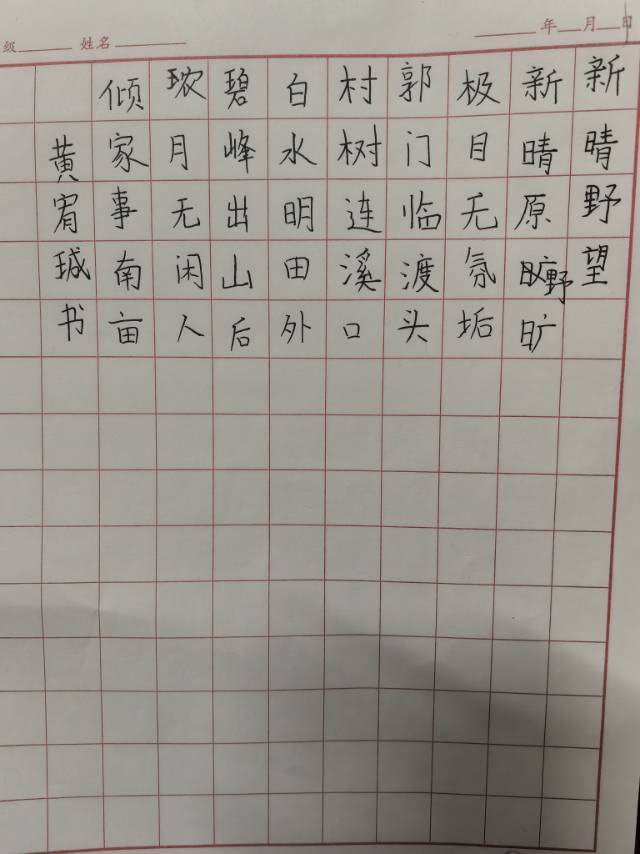 级 姓名 年 月 日
新晴野望
新晴原旷野旷
极目无氛垢
郭门临渡头
村树连溪口
白水明田外
碧峰出山后
月无闲人
倾家事南亩
黄宥珹书